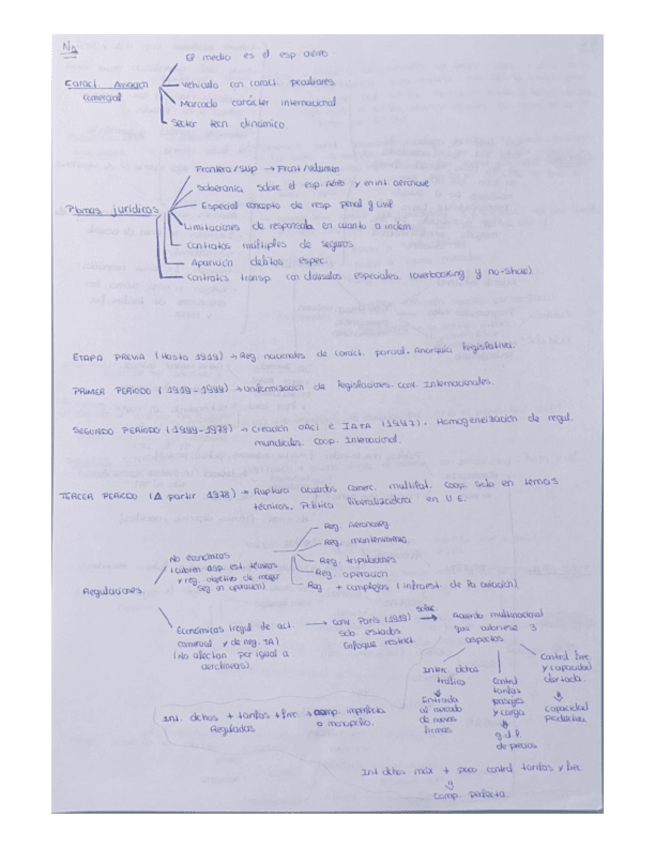 El medio es el esp aéreo
Caract. Aviación
comercial
vehículo con caract. peculiares
Marcado carácter internacional
Sector tecn. dinámico.
Frontera/Sup → Front/Volumen
Soberanía sobre el esp. Aéreo y
aeronave
Especial concepto de resp. penal y civil
jurídicos
Limitaciones de responsab. en cuanto a indem
Contratos múltiples de seguros
Aparición delitos espec.
Contratos transp. con clausulas especiales (overbooking y no-show)
ETAPA PREVIA (Hasta 1919) → Reg nacionales de caract. parcial. Anarquía legislativa.
PRIMER PERÍODO (1919-1944) → Uniformización de legislaciones. Conv. Internacionales.
SEGUNDO PERÍODO (1944-1978) → Creación OACI e IATA
Homogeneización de regul.
mundiales. Coop. Internacional.
TERCER PERÍODO (A partir 1978) → Ruptura acuerdos comerc. multilat. Coop. solo en temas
técnicos. Política liberalizadora en U.E.
Reg. Aeronaveg
No económicos
Reg. mantenimiento.
(cubren asp. est. técnicos
y reg. objetivo de mayor
seg en operación)
Reg. tripulaciones
Reg. operación
Regulaciones
Reg + complejas (infraest. de la aviación)
Económicas (regul de act.
comercial y de neg. TA)
(No afectan por igual a
aerolíneas)
→ Conv. París (1919)
solo estados.
Enfoque restrict.
sobre
→ Acuerdo multinacional
que cubriese 3
aspectos
Interc. dchos
tráfico
Control
tarifas
pasajes
y carga
Control frec.
y capacidad
ofertada.
Entrada
al mercado
de nuevas
firmas
de precios
capacidad
productiva
Int. dchos + tarifas + frec → comp. imperfecta
Reguladas
o monopolio.
Int dchos máx + poco control tarifas y frec
comp. perfecta.